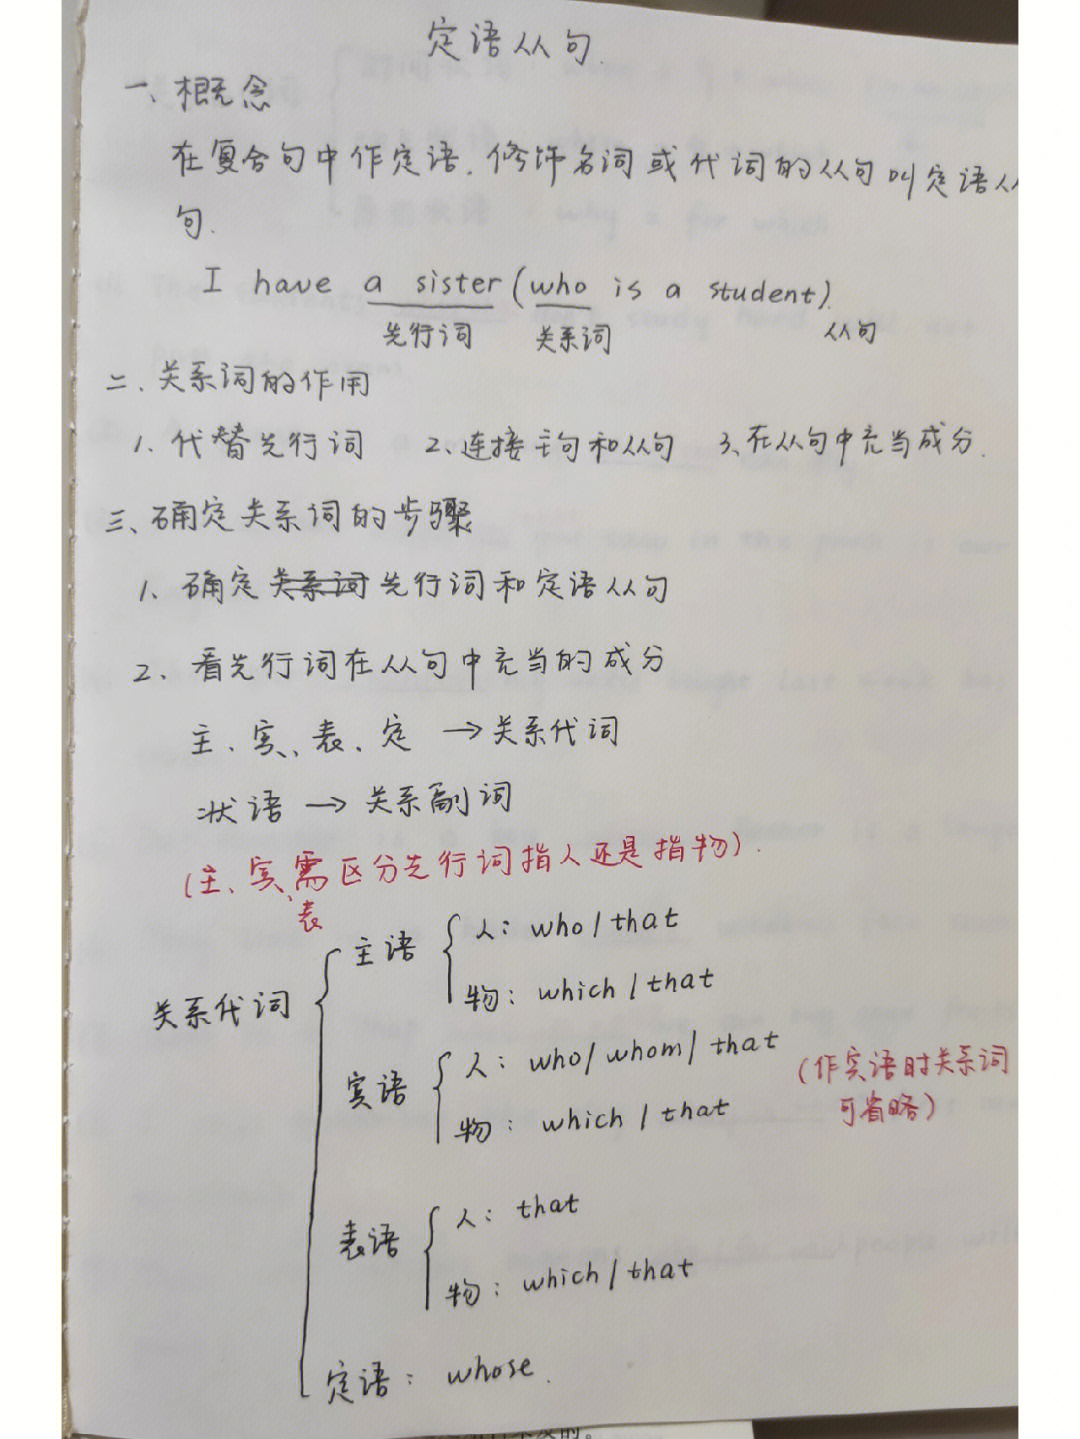 定语从句
一、概念
在复合句中作定语,修饰名词或代词的从句叫定语从
句.
I have a sister (who is a student).
先行词 关系词 从句
二、关系词的作用
1. 代替先行词 2、连接主句和从句 3、在从句中充当成分.
三、确定关系词的步骤
1、确定关系词先行词和定语从句
2、看先行词在从句中充当的成分
主、宾、表、定 → 关系代词
状语 → 关系副词
(主、宾、表需区分先行词指人还是指物).
关系代词
主语 人: who / that
物: which / that
宾语 人: who / whom / that (作宾语时关系词
物: which / that 可省略)
表语 人: that
物: which / that
定语: whose.